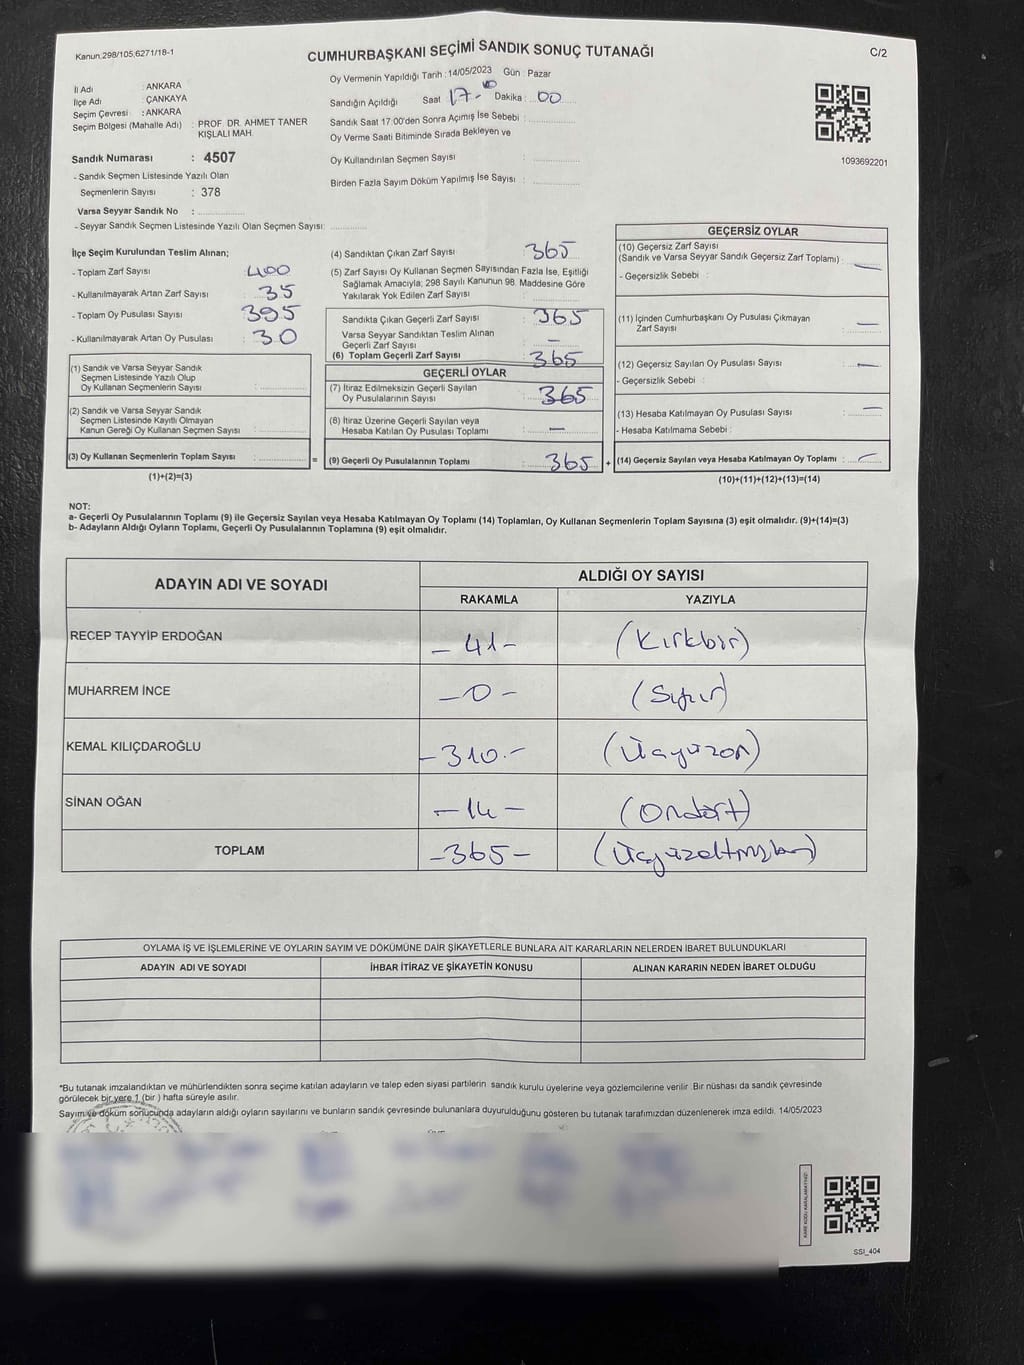 Kanun,298/105,6271/18-1
CUMHURBAŞKANI SEÇİMİ SANDIK SONUÇ TUTANAĞI
C/2
İl Adı : ANKARA
İlçe Adı : ÇANKAYA
Seçim Çevresi : ANKARA
Seçim Bölgesi (Mahalle Adı) : PROF. DR. AHMET TANER
KIŞLALI MAH.
Sandık Numarası : 4507
- Sandık Seçmen Listesinde Yazılı Olan
Seçmenlerin Sayısı : 378
Varsa Seyyar Sandık No :
- Seyyar Sandık Seçmen Listesinde Yazılı Olan Seçmen Sayısı:
Oy Vermenin Yapıldığı Tarih : 14/05/2023 Gün : Pazar
Sandığın Açıldığı Saat : 17 - Dakika : 00
Sandık Saat 17:00'den Sonra Açımış İse Sebebi :
Oy Verme Saati Bitiminde Sırada Bekleyen ve
Oy Kullandırılan Seçmen Sayısı :
Birden Fazla Sayım Döküm Yapılmış İse Sayısı :
1093692201
İlçe Seçim Kurulundan Teslim Alınan;
- Toplam Zarf Sayısı : 400
- Kullanılmayarak Artan Zarf Sayısı : 35
- Toplam Oy Pusulası Sayısı : 395
- Kullanılmayarak Artan Oy Pusulası : 30
(1) Sandık ve Varsa Seyyar Sandık
Seçmen Listesinde Yazılı Olup
Oy Kullanan Seçmenlerin Sayısı :
(2) Sandık ve Varsa Seyyar Sandık
Seçmen Listesinde Kayıtlı Olmayan
Kanun Gereği Oy Kullanan Seçmen Sayısı :
(3) Oy Kullanan Seçmenlerin Toplam Sayısı : =
(1)+(2)=(3)
(4) Sandıktan Çıkan Zarf Sayısı : 365
(5) Zarf Sayısı Oy Kullanan Seçmen Sayısından Fazla İse, Eşitliği
Sağlamak Amacıyla; 298 Sayılı Kanunun 98. Maddesine Göre
Yakılarak Yok Edilen Zarf Sayısı :
Sandıkta Çıkan Geçerli Zarf Sayısı : 365
Varsa Seyyar Sandıktan Teslim Alınan
Geçerli Zarf Sayısı : -
(6) Toplam Geçerli Zarf Sayısı : 365
GEÇERLİ OYLAR
(7) İtiraz Edilmeksizin Geçerli Sayılan
Oy Pusulalarının Sayısı : 365
(8) İtiraz Üzerine Geçerli Sayılan ve
Hesaba Katılan Oy Pusulası Toplamı : -
(9) Geçerli Oy Pusulalarının Toplamı : 365 +
GEÇERSİZ OYLAR
(10) Geçersiz Zarf Sayısı
(Sandık ve Varsa Seyyar Sandık Geçersiz Zarf Toplamı) : -
- Geçersizlik Sebebi :
(11) İçinden Cumhurbaşkanı Oy Pusulası Çıkmayan
Zarf Sayısı : -
(12) Geçersiz Sayılan Oy Pusulası Sayısı : -
- Geçersizlik Sebebi :
(13) Hesaba Katılmayan Oy Pusulası Sayısı : -
- Hesaba Katılmama Sebebi :
(14) Geçersiz Sayılan veya Hesaba Katılmayan Oy Toplamı : -
(10)+(11)+(12)+(13)=(14)
NOT:
a- Geçerli Oy Pusulalarının Toplamı (9) ile Geçersiz Sayılan veya Hesaba Katılmayan Oy Toplamı (14) Toplamları, Oy Kullanan Seçmenlerin Toplam Sayısına (3) eşit olmalıdır. (9)+(14)=(3)
b- Adayların Aldığı Oyların Toplamı, Geçerli Oy Pusulalarının Toplamına (9) eşit olmalıdır.
ADAYIN ADI VE SOYADI ALDIĞI OY SAYISI
RAKAMLA YAZIYLA
RECEP TAYYİP ERDOĞAN - 41 - (Kırkbir)
MUHARREM İNCE - 0 - (Sıfır)
KEMAL KILIÇDAROĞLU - 310 - (Üçyüzon)
SİNAN OĞAN - 14 - (Ondört)
TOPLAM - 365 - (Üçyüzaltmışbeş)
OYLAMA İŞ VE İŞLEMLERİNE VE OYLARIN SAYIM VE DÖKÜMÜNE DAİR ŞİKAYETLERLE BUNLARA AİT KARARLARIN NELERDEN İBARET BULUNDUKLARI
ADAYIN ADI VE SOYADI İHBAR İTİRAZ VE ŞİKAYETİN KONUSU ALINAN KARARIN NEDEN İBARET OLDUĞU
*Bu tutanak imzalandıktan ve mühürlendikten sonra seçime katılan adayların ve talep eden siyasi partilerin sandık kurulu üyelerine veya gözlemcilerine verilir. Bir nüshası da sandık çevresinde
görülecek bir yere 1 (bir ) hafta süreyle asılır.
Sayım ve döküm sonucunda adayların aldığı oyların sayılarını ve bunların sandık çevresinde bulunanlara duyurulduğunu gösteren bu tutanak tarafımızdan düzenlenerek imza edildi. 14/05/2023
KARE KODU KARALAMAYINIZ!
SSI_404